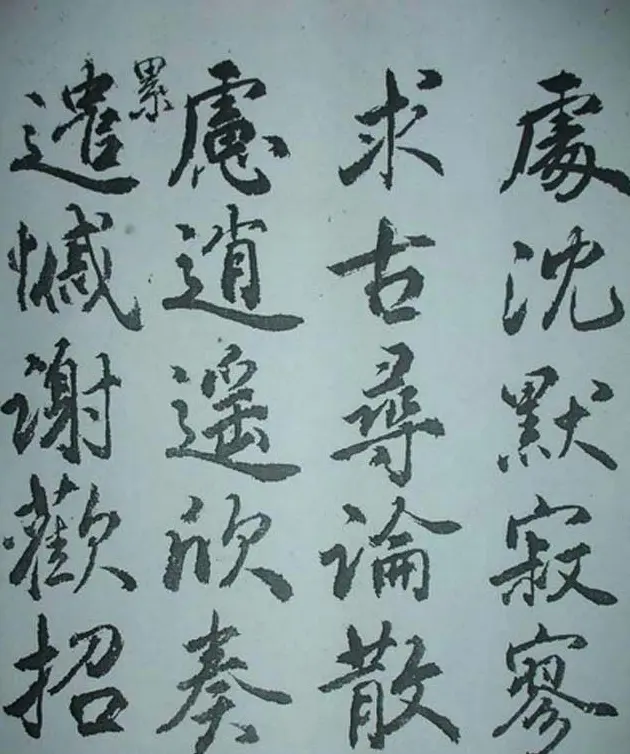 處沈默寂寥
求古尋論散
慮逍遙欣奏
累遣慽謝歡招